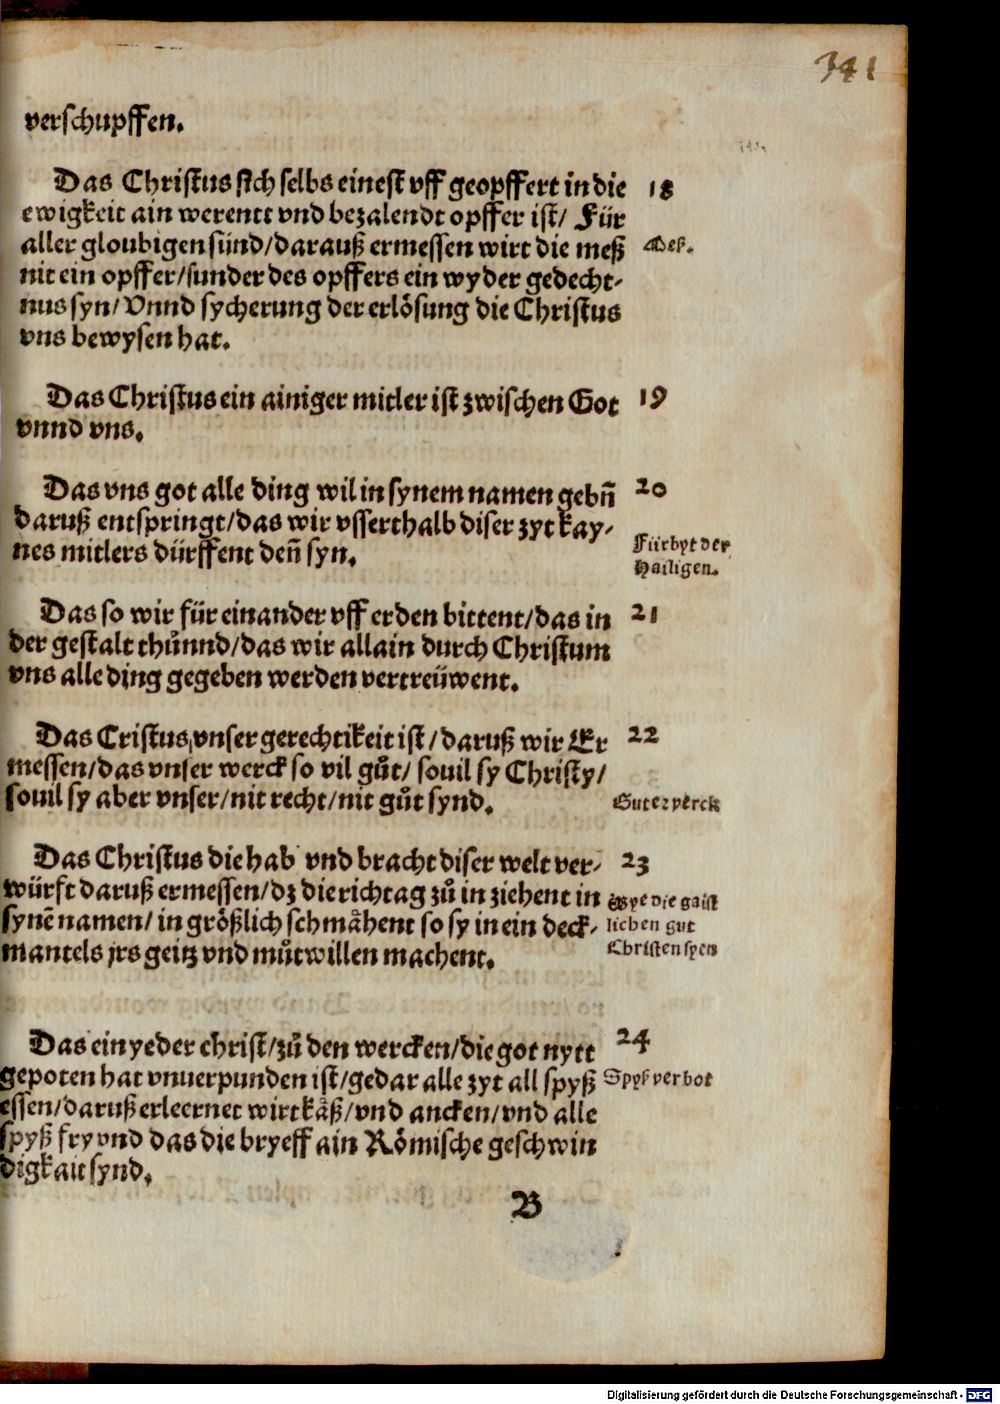 341
verschupffen.
Das Christus sich selbs einest vff geopffert in die 18
ewigkeit ain werentt vnd bezalendt opffer ist/ Für
aller gloubigen sünd/darauß ermessen wirt die meß Meß.
nit ein opffer/sunder des opffers ein wyder gedecht-
nus syn/Vnnd sycherung der erlösung die Christus
vns bewysen hat.
Das Christus ein ainiger mitler ist zwischen Got 19
vnnd vns.
Das vns got alle ding wil in synem namen gebñ 20
daruß entspringt/das wir vsserthalb diser zyt kay-
nes mitlers dürffent deñ syn. Fürbyt der
Hailigen.
Das so wir für einander vff erden bittent/das in 21
der gestalt thůnnd/das wir allain durch Christum
vns alle ding gegeben werden vertreüwent.
Das Cristus vnser gerechtikeit ist/daruß wir Er 22
messen/das vnser werck so vil gůt/ souil sy Christy/
souil sy aber vnser/nit recht/nit gůt synd. Guter werck
Das Christus die hab vnd bracht diser welt ver- 23
würft daruß ermessen/dz die richtag zů in ziehent in Wye die gaist
synē namen/ in größlich schmåhent so sy in ein deck- lichen gut
mantels jrs geitz vnd můtwillen machent. Christen syen
Das ein yeder christ/zů den wercken/die got nytt 24
gepoten hat vnuerpunden ist/gedar alle zyt all spyß Spyß verbot
essen/daruß erleernet wirt kåß/vnd ancken/vnd alle
spyß fry vnd das die bryeff ain Römische geschwin
digkait synd.
B
Digitalisierung gefördert durch die Deutsche Forschungsgemeinschaft - DFG